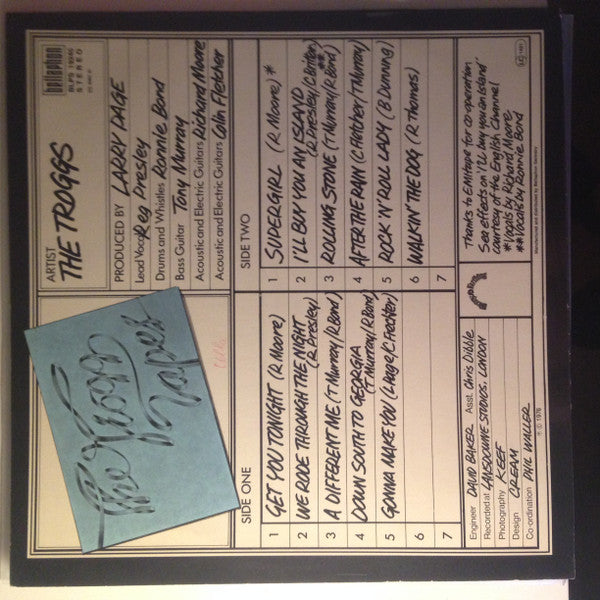 ARTIST
THE TROGGS
bellaphon
BLPS 19245
STEREO
PRODUCED BY LARRY PAGE
Lead Vocal Reg Presley
Drums and Whistles Ronnie Bond
Bass Guitar Tony Murray
Acoustic and Electric Guitars Richard Moore
Acoustic and Electric Guitars Colin Fletcher
The Trogg
Tapes
SIDE ONE
1 GET YOU TONIGHT (R Moore)
2 WE RODE THROUGH THE NIGHT
(R Presley)
3 A DIFFERENT ME (T Murray/R Bond)
4 DOWN SOUTH TO GEORGIA
(T Murray/R Bond)
5 GONNA MAKE YOU (L Page/C Fletcher)
6
7
SIDE TWO
1 SUPERGIRL (R Moore) *
2 I'LL BUY YOU AN ISLAND
(R Presley/R Britten)
3 ROLLING STONE (T Murray/R Bond) **
4 AFTER THE RAIN (C Fletcher/T Murray)
5 ROCK 'N' ROLL LADY (B Dunning)
6 WALKIN' THE DOG (R Thomas)
7
Engineer DAVID BAKER Asst. Chris Dibble
Recorded at LANSDOWNE STUDIOS, LONDON
Photography KEEF
Design CREAM
Co-ordination PHIL WALLER
℗ © 1976
Thanks to EMItape for co-operation
Sea effects on 'I'll buy you an Island'
courtesy of the English Channel
*Vocals by Richard Moore
**Vocals by Ronnie Bond
Manufactured and distributed by Bellaphon, Germany